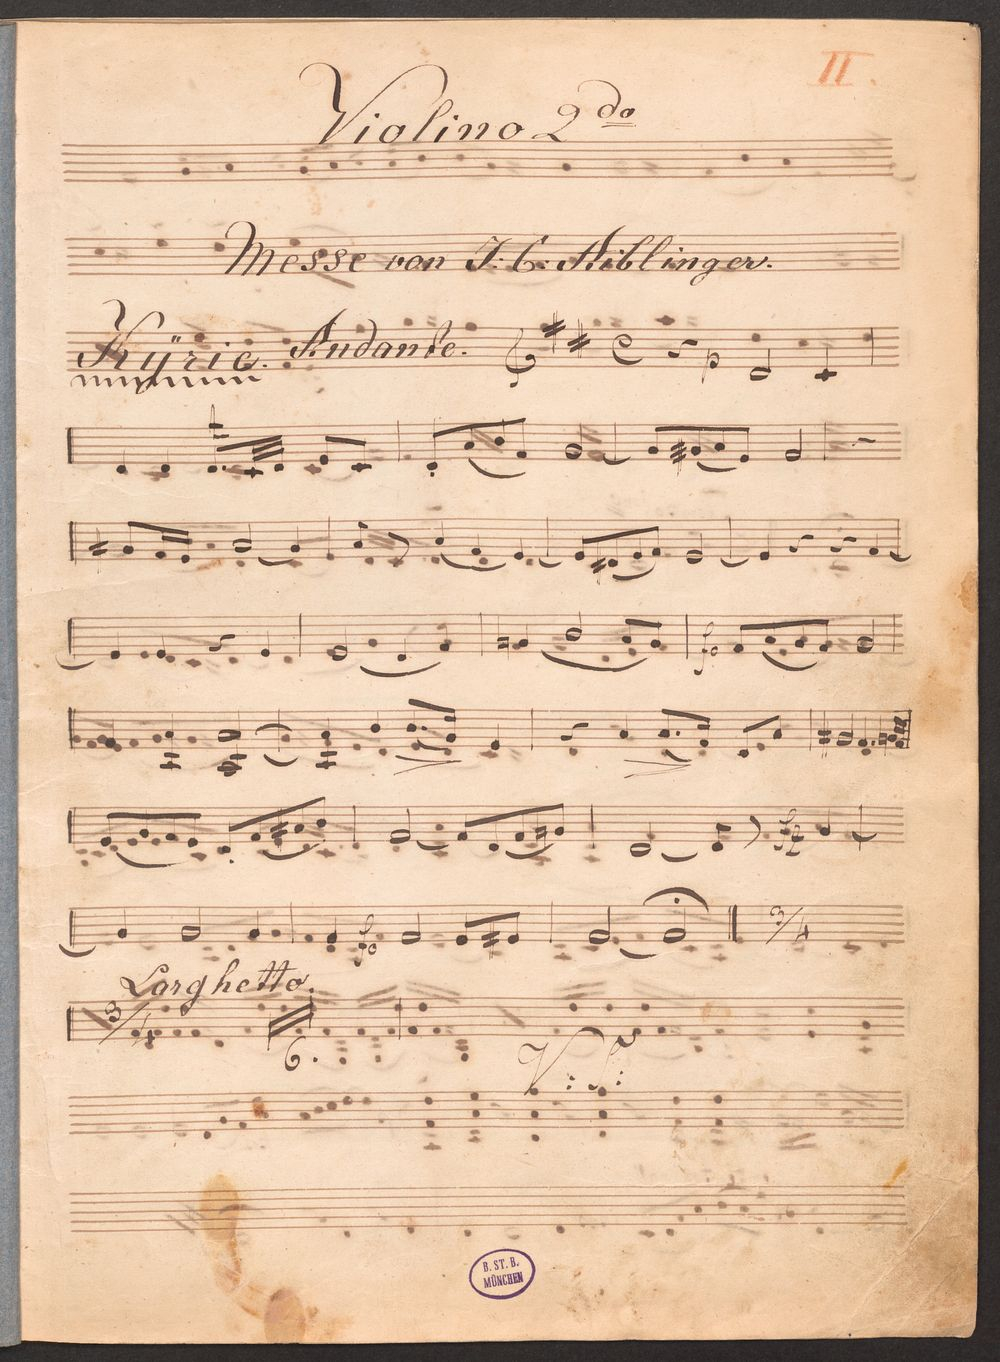 II.
Violino 2do
Messe von J: C: Aiblinger.
Kÿrie. Andante.
p
fo
fz
fo
3/4
Larghetto.
3/4
6.
V: S:
B. ST. B.
MÜNCHEN